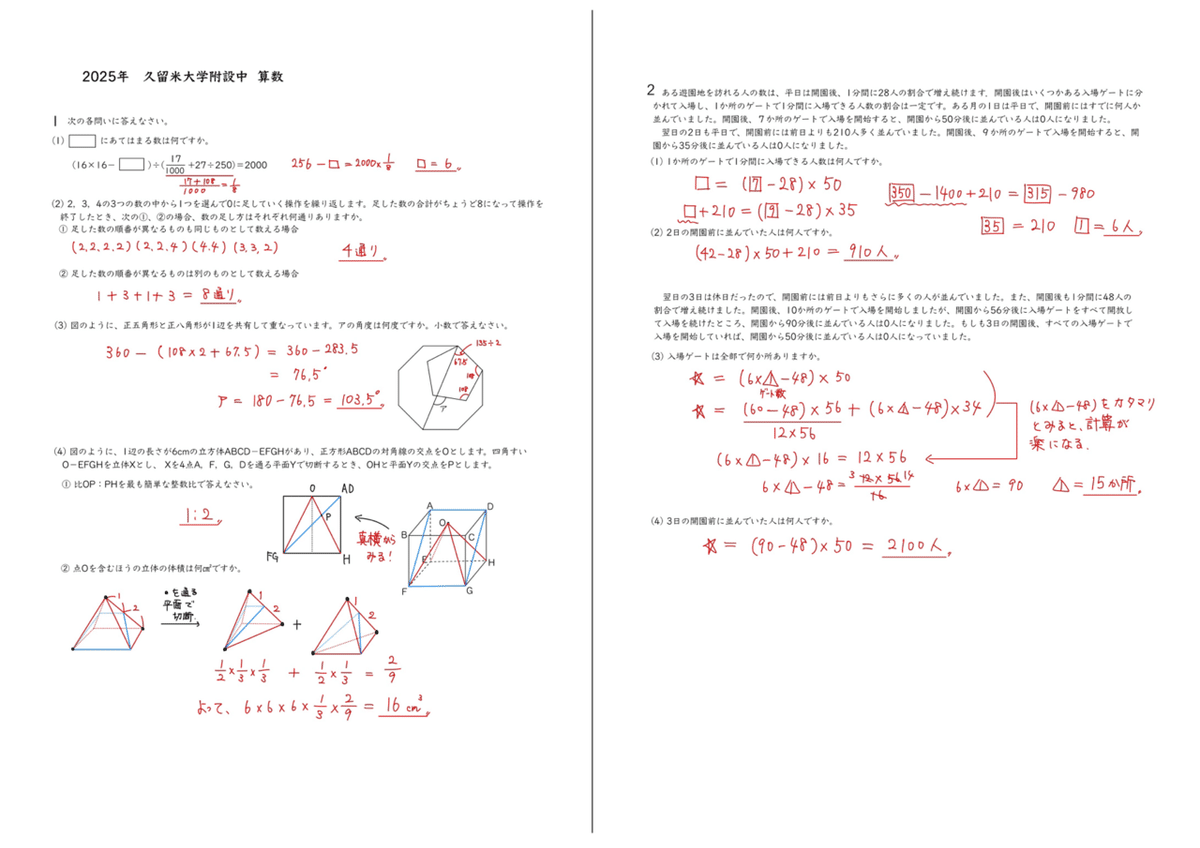 2025年 久留米大学附設中 算数
1 次の各問いに答えなさい。
(1) □ にあてはまる数は何ですか。
(16×16− □ )÷(17/1000+27÷250)=2000
256−□=2000×1/8 □=6。
17+108/1000=1/8
(2) 2, 3, 4の3つの数の中から1つを選んで0に足していく操作を繰り返します。足した数の合計がちょうど8になって操作を
終了したとき、次の①、②の場合、数の足し方はそれぞれ何通りありますか。
① 足した数の順番が異なるものも同じものとして数える場合
(2,2,2,2)(2,2,4)(4,4)(3,3,2) 4通り。
② 足した数の順番が異なるものは別のものとして数える場合
1+3+1+3=8通り。
(3) 図のように、正五角形と正八角形が1辺を共有して重なっています。アの角度は何度ですか。小数で答えなさい。
360−(108×2+67.5)=360−283.5
=76.5°
ア=180−76.5=103.5°
135÷2
67.5
108
108
ア
(4) 図のように、1辺の長さが6cmの立方体ABCD−EFGHがあり、正方形ABCDの対角線の交点をOとします。四角すい
O−EFGHを立体Xとし、Xを4点A、F、G、Dを通る平面Yで切断するとき、OHと平面Yの交点をPとします。
① 比OP：PHを最も簡単な整数比で答えなさい。
1:2。
O AD
P
FG H
真横から
みる!
A D
O
B C
E H
F G
② 点Oを含むほうの立体の体積は何cm³ですか。
1
2
•を通る
平面で
切断
1
2
+
1
2
1/2×1/3×1/3 + 1/2×1/3 = 2/9
よって、6×6×6×1/3×2/9=16cm³。
2 ある遊園地を訪れる人の数は、平日は開園後、1分間に28人の割合で増え続けます。開園後はいくつかある入場ゲートに分
かれて入場し、1か所のゲートで1分間に入場できる人数の割合は一定です。ある月の1日は平日で、開園前にはすでに何人か
並んでいました。開園後、7か所のゲートで入場を開始すると、開園から50分後に並んでいる人は0人になりました。
翌日の2日も平日で、開園前には前日よりも210人多く並んでいました。開園後、9か所のゲートで入場を開始すると、開
園から35分後に並んでいる人は0人になりました。
(1) 1か所のゲートで1分間に入場できる人数は何人ですか。
□=(7−28)×50
□+210=(9−28)×35
350−1400+210=315−980
35=210 1=6人。
(2) 2日の開園前に並んでいた人は何人ですか。
(42−28)×50+210=910人。
翌日の3日は休日だったので、開園前には前日よりもさらに多くの人が並んでいました。また、開園後も1分間に48人の
割合で増え続けました。開園後、10か所のゲートで入場を開始しましたが、開園から56分後に入場ゲートをすべて開放し
て入場を続けたところ、開園から90分後に並んでいる人は0人になりました。もしも3日の開園後、すべての入場ゲートで
入場を開始していれば、開園から50分後に並んでいる人は0人になっていました。
(3) 入場ゲートは全部で何か所ありますか。
☆=(6×△1−48)×50
ゲート数
☆=(60−48)×56+(6×△1−48)×34
12×56
(6×△1−48)をカタマリ
とみると、計算が
楽になる。
(6×△1−48)×16=12×56
6×△1−48=3 12×56 14/16 6×△1=90 △1=15か所。
(4) 3日の開園前に並んでいた人は何人ですか。
☆=(90−48)×50=2100人。